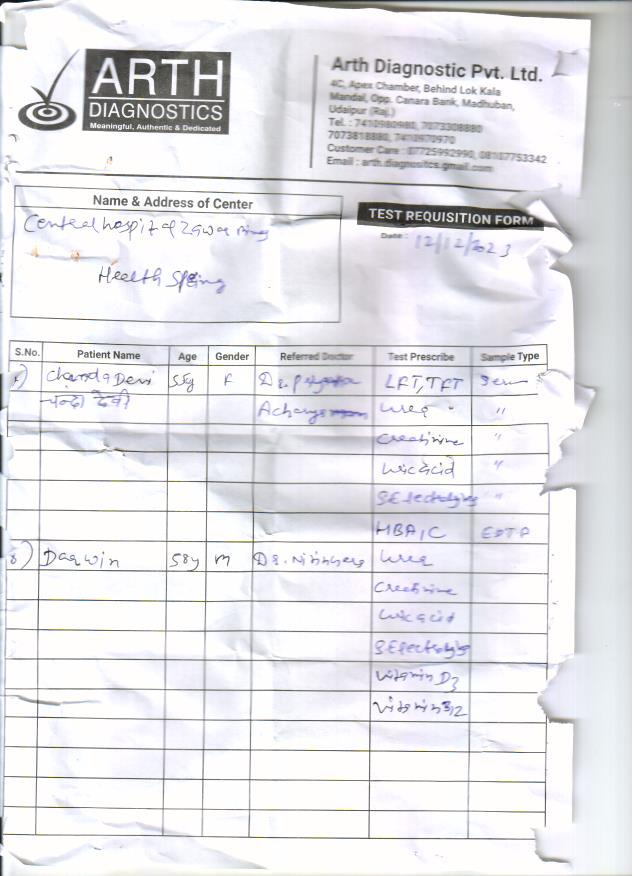 ARTH
DIAGNOSTICS
Meaningful, Authentic & Dedicated
Arth Diagnostic Pvt. Ltd.
4C, Apex Chamber, Behind Lok Kala
Mandal, Opp. Canara Bank, Madhuban,
Udaipur (Raj.)
Tel. : 7410980980, 7073308880
7073818888, 7410970970
Customer Care : 07725992990, 08107753342
Email : arth.diagnositcs.gmail.com
Name & Address of Center
Central hospital Zawar
Health Spring
TEST REQUISITION FORM
Date : 12/12/2023
S.No. Patient Name Age Gender Referred Doctor Test Prescribe Sample Type
Chanda Devi 55y F Dr. LFT, TFT Serum
चन्दा देवी Acharya Urea "
Creatinine "
Uric acid "
S Electrolytes "
HBA1C EDTA
Darwin 58y M Dr. Urea
Creatinine
Uric acid
S Electrolytes
Vitamin D3
Vitamin B12